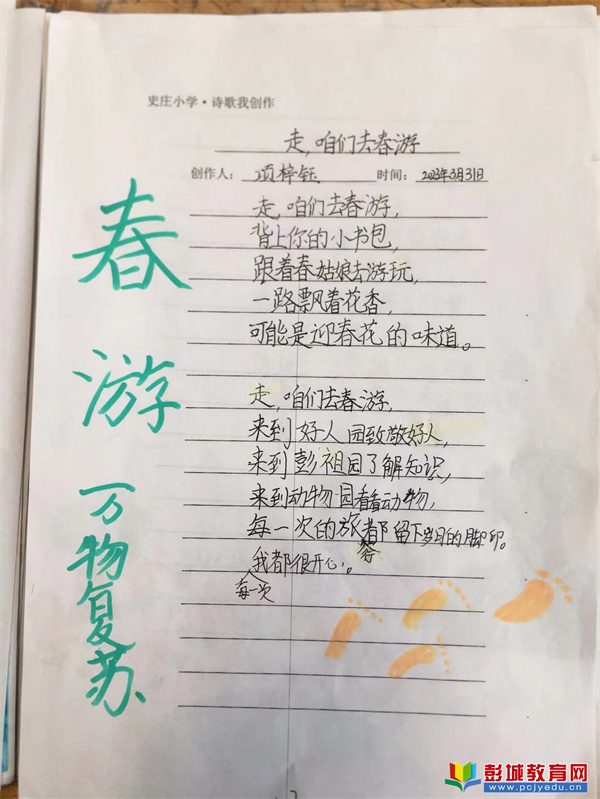 史庄小学·诗歌我创作
走,咱们去春游
创作人: 项梓钰 时间: 2023年3月31日
走,咱们去春游,
背上你的小书包,
跟着春姑娘去游玩,
一路飘着花香,
可能是迎春花的味道。
走,咱们去春游,
来到好人园致敬好人,
来到彭祖园了解知识,
来到动物园看看动物,
每一次的旅都留下岁月的脚印。
我都很开心。
每一次
春
游
万物复苏
彭城教育网
www.pcjyedu.cn